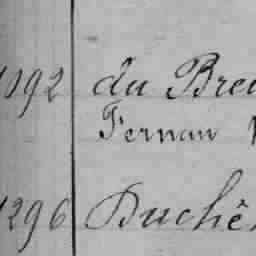 1092 du Breu
Fernan
1296 Duchê